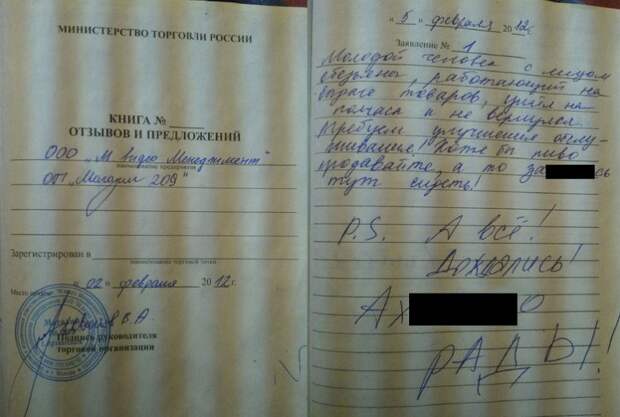 МИНИСТЕРСТВО ТОРГОВЛИ РОССИИ
КНИГА №
ОТЗЫВОВ И ПРЕДЛОЖЕНИЙ
ООО „М видео Менеджмент"
наименование предприятия
ОП „Магазин 209"
Зарегистрирован в
наименование торговой точки
« 02 » февраля 2012 г.
Место печати
В.А
Подпись руководителя
торговой организации
« 5 » февраля 2012г.
Заявление № 1
Молодой человек с лицом
обезьяны, работающий на
выдаче товаров, ушёл на
полчаса и не вернулся.
Требуем улучшения обслу-
живания! Хотя бы пиво
продавайте, а то за сь
тут сидеть!
P.S. А всё!
Дождались!
Ах о
РАДЫ!